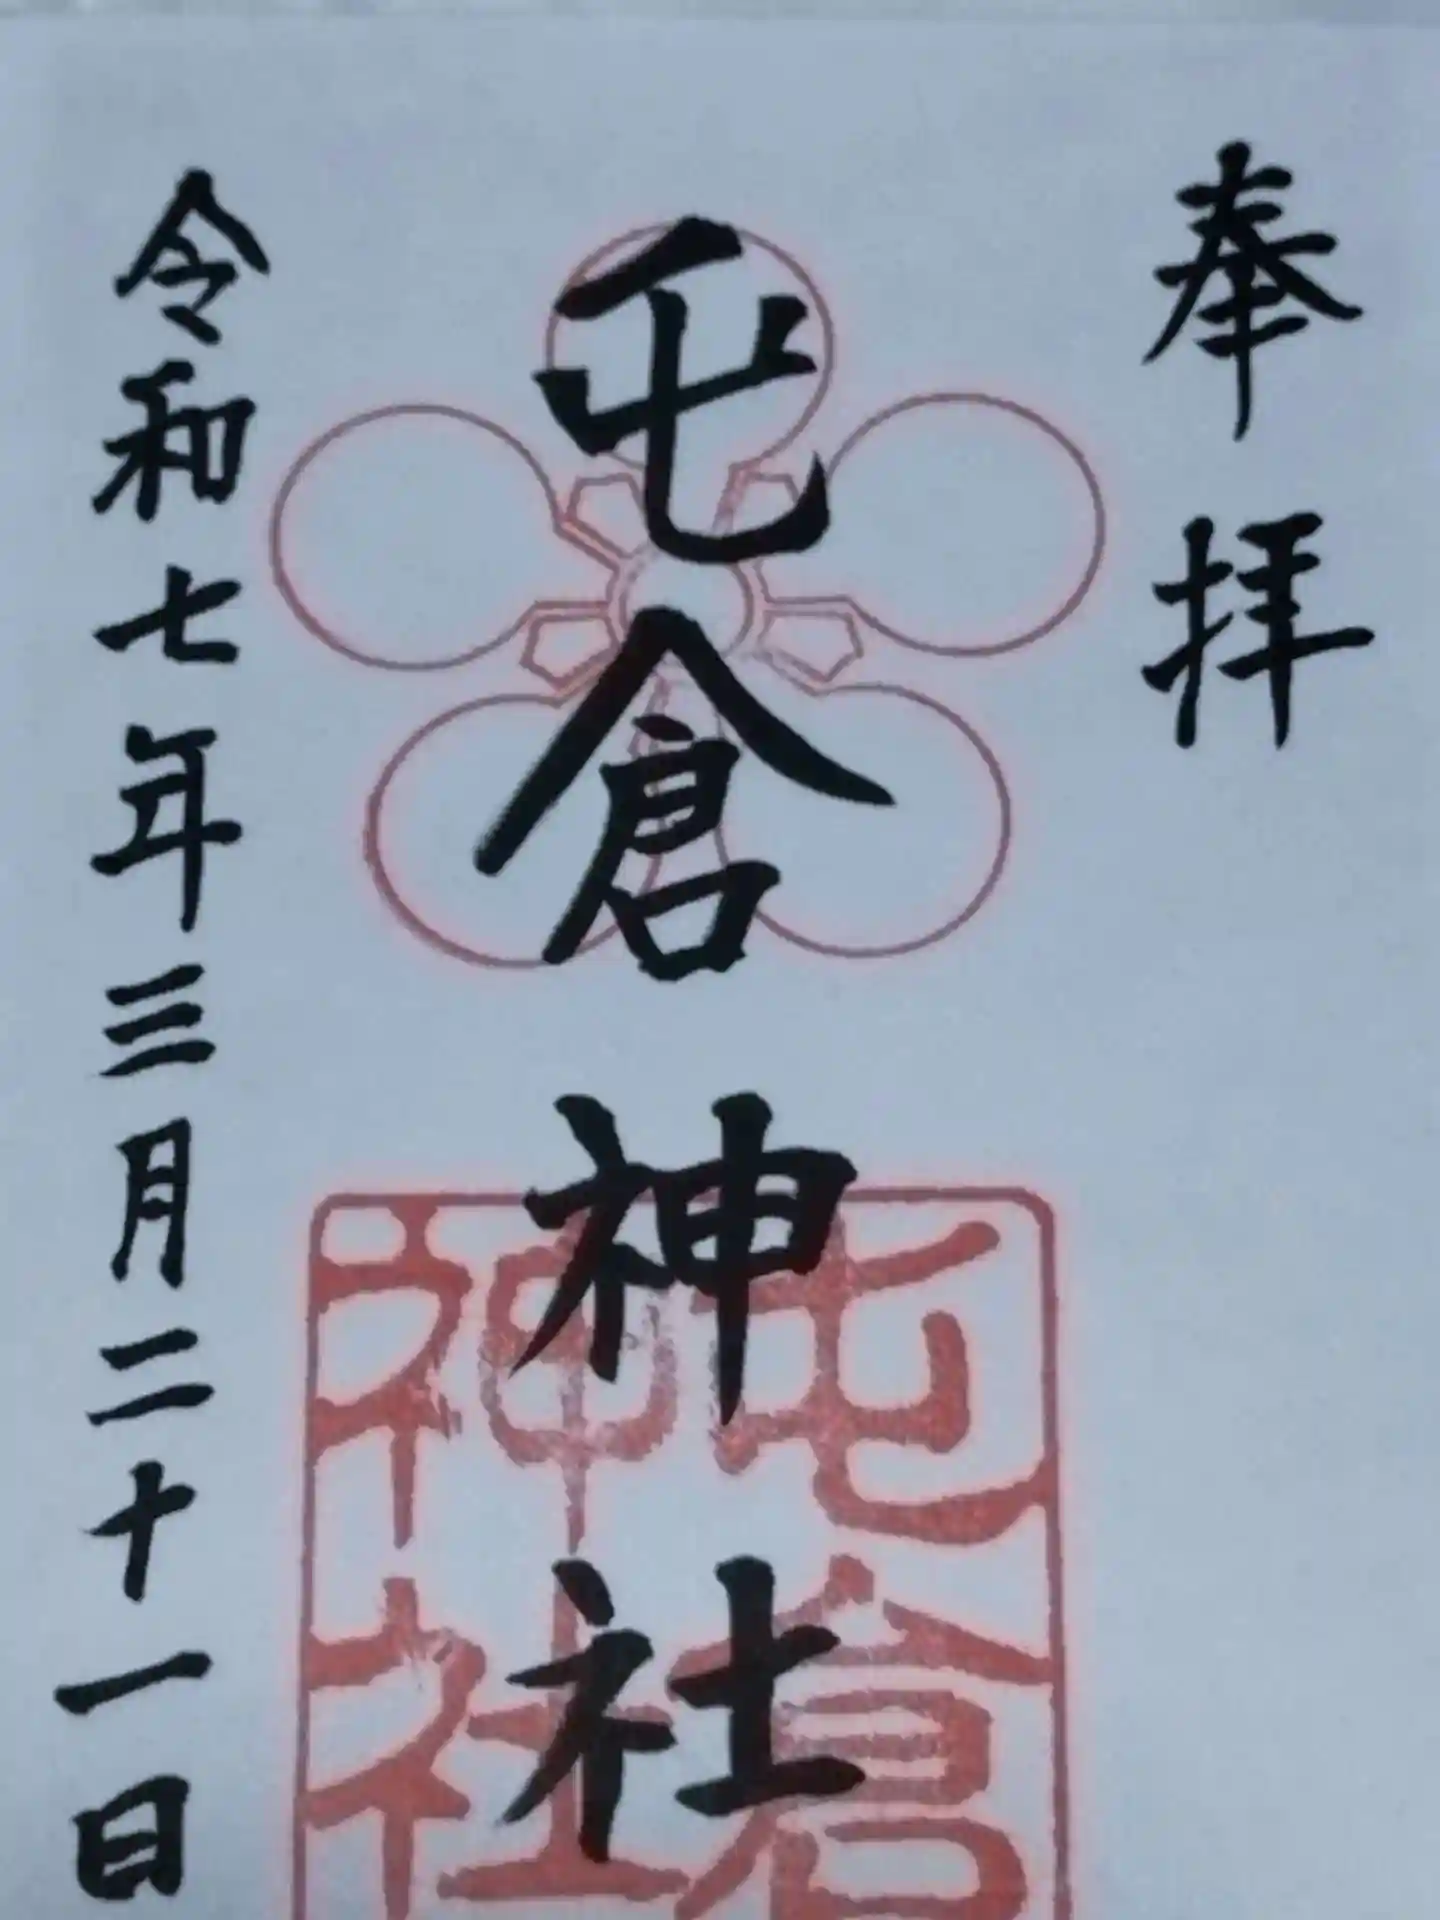 奉拝
屯倉神社
屯倉神社
令和七年三月二十一日